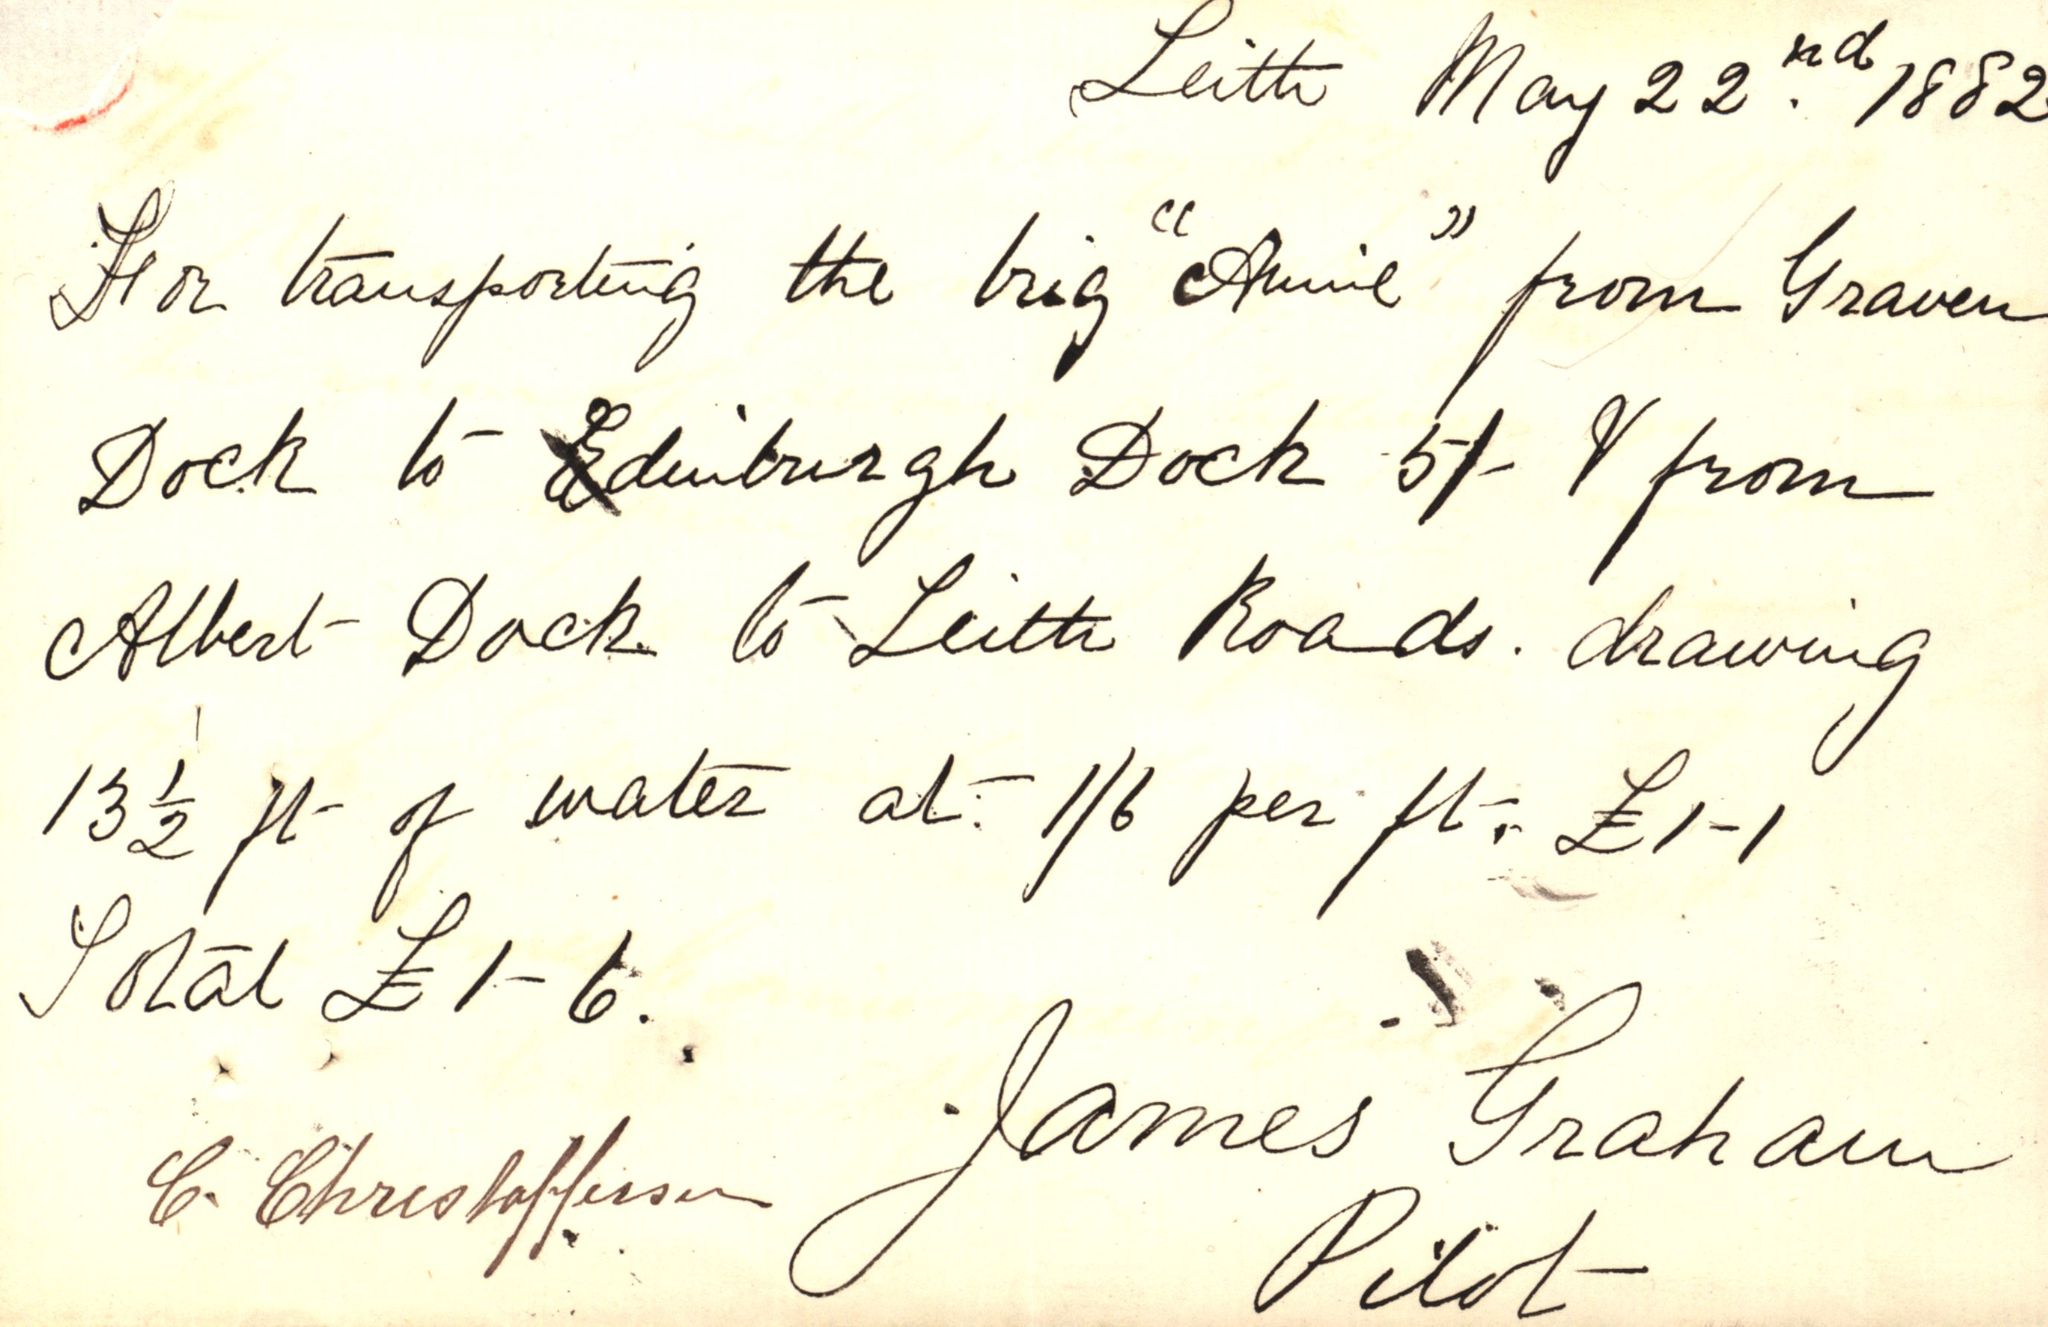 Leith May 22nd. 1882
For transporting the brig "Annie" from Graven
Dock to Edinburgh Dock 5/- & from
Albert Dock to Leith Roads. drawing
13 1/2 ft of water at 1/6 per ft. £1-1
Total £1-6.
James Graham
C. Christoffersen
Pilot